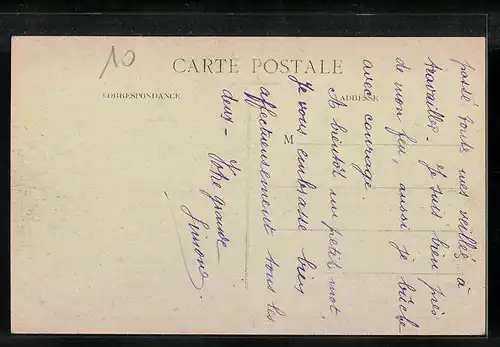 10
CARTE POSTALE
CORRESPONDANCE
ADRESSE
M
passé toutes mes veillées à
travailler. Je suis bien près
de mon feu, aussi je bûche
avec courage.
A bientôt un petit mot,
Je vous embrasse bien
affectueusement tous les
deux - Votre grande
Simone